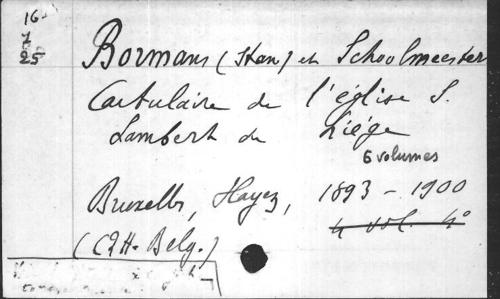 16-
7
25
Bormans (Stan) et Schoolmeesters
Cartulaire de l'église S.
Lambert de Liége
6 volumes
Bruxelles, Hayez, 1893 - 1900
4 vol. 4°
(CRH. Belg.)